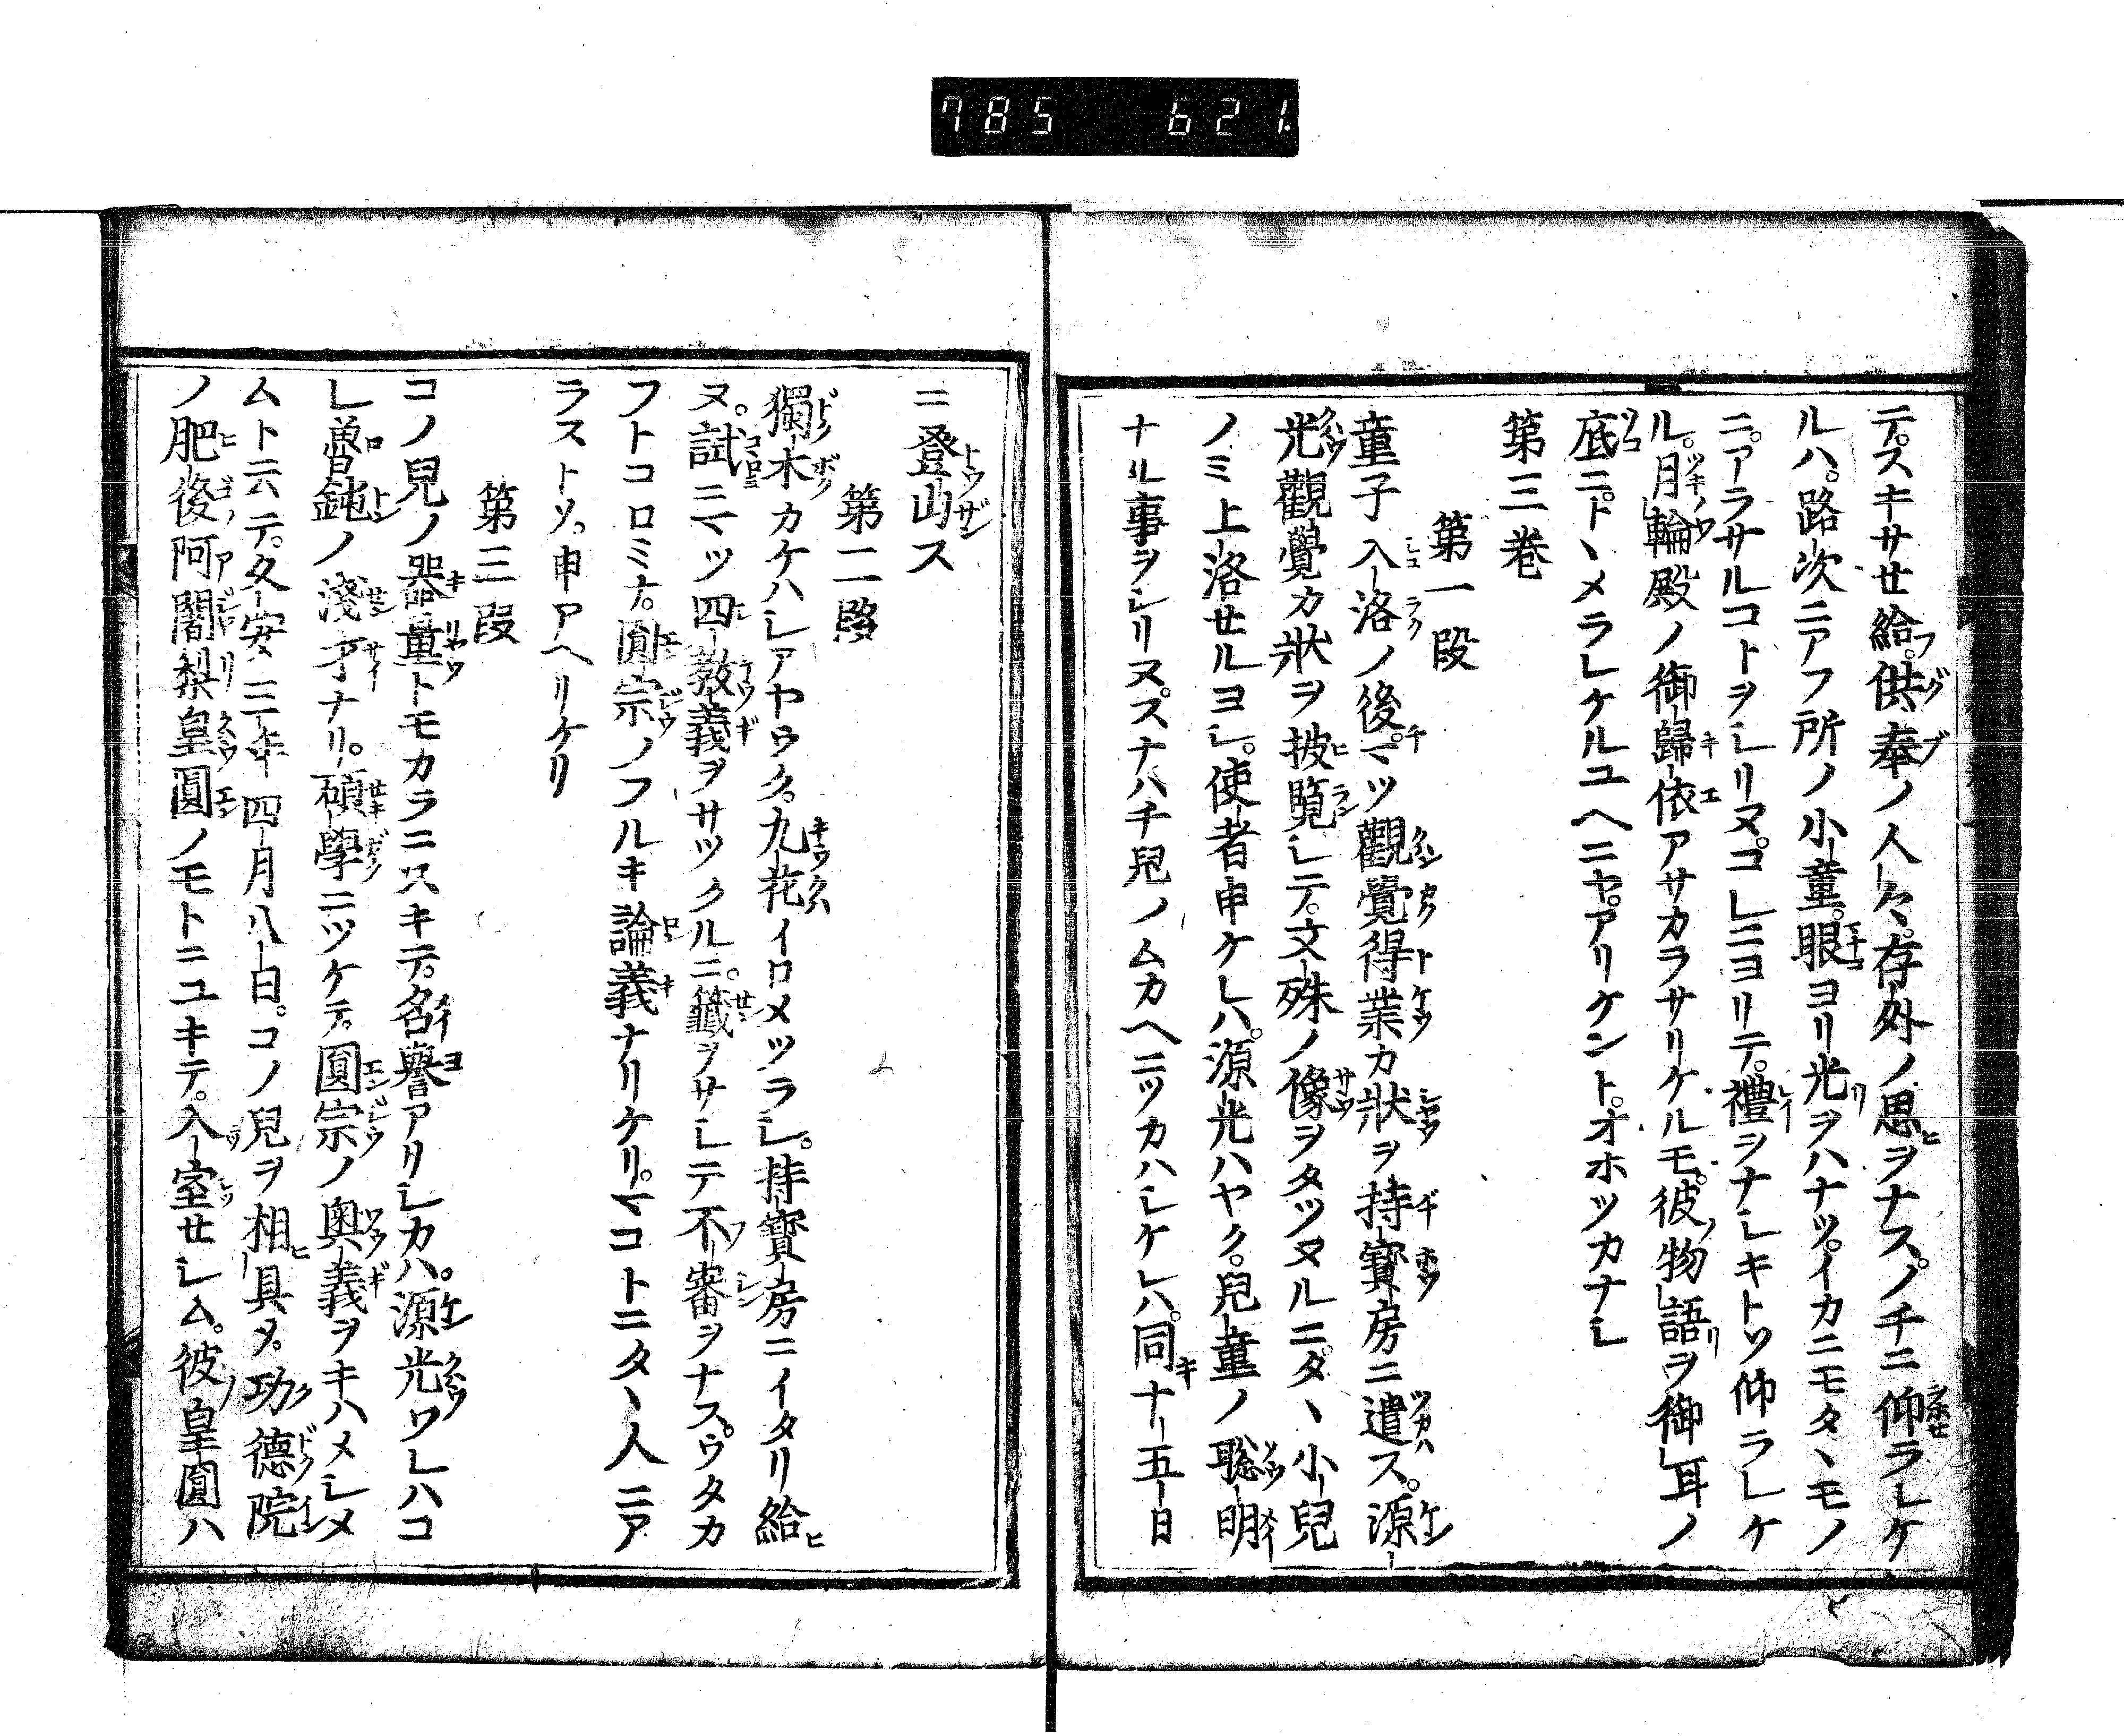 785 621.
テ。スキサセ給。供奉ノ人々。存外ノ思ヲナス。ノチニ仰ラレケ
ルハ。路次ニアフ所ノ小童。眼ヨリ光ヲハナツ。イカニモタヽモノ
ニ。アラサルコトヲシリヌ。コレニヨリテ。禮ヲナシキトソ仰ラレケ
ル。月輪殿ノ御歸依アサカラサリケルモ。彼物語ヲ御耳ノ
底ニ。トヽメラレケルユヘニヤ。アリケント。オホツカナシ
第三巻
第一段
童子入洛ノ後。マツ觀覺得業カ狀ヲ持寶房ニ遣ス。源
光觀覺カ狀ヲ披覽シテ。文殊ノ像ヲタツヌルニ。タヽ小兒
ノミ上洛セルヨシ。使者申ケレハ。源光ハヤク。兒童ノ聡明
ナル事ヲシリヌ。スナハチ兒ノムカヘニツカハシケレハ。同十五日
ニ登山ス
第二段
獨木カケハシアヤウク。九花イロメツラシ。持寶房ニイタリ給
ヌ。試ニマツ四教義ヲサツクルニ。籤ヲサシテ不審ヲナス。ウタカ
フトコロミナ。圓宗ノフルキ論義ナリケリ。マコトニタヽ人ニア
ラストソ。申アヘリケリ
第三段
コノ兒ノ器量トモカラニスキテ。名譽アリシカハ。源光ワレハコ
レ魯鈍ノ淺才ナリ。碩學ニツケテ。圓宗ノ奥義ヲキハメシメ
ムト云テ。久安三年四月八日。コノ兒ヲ相具メ。功德院
ノ肥後阿闍梨皇圓ノモトニユキテ。入室セシム。彼皇圓ハ